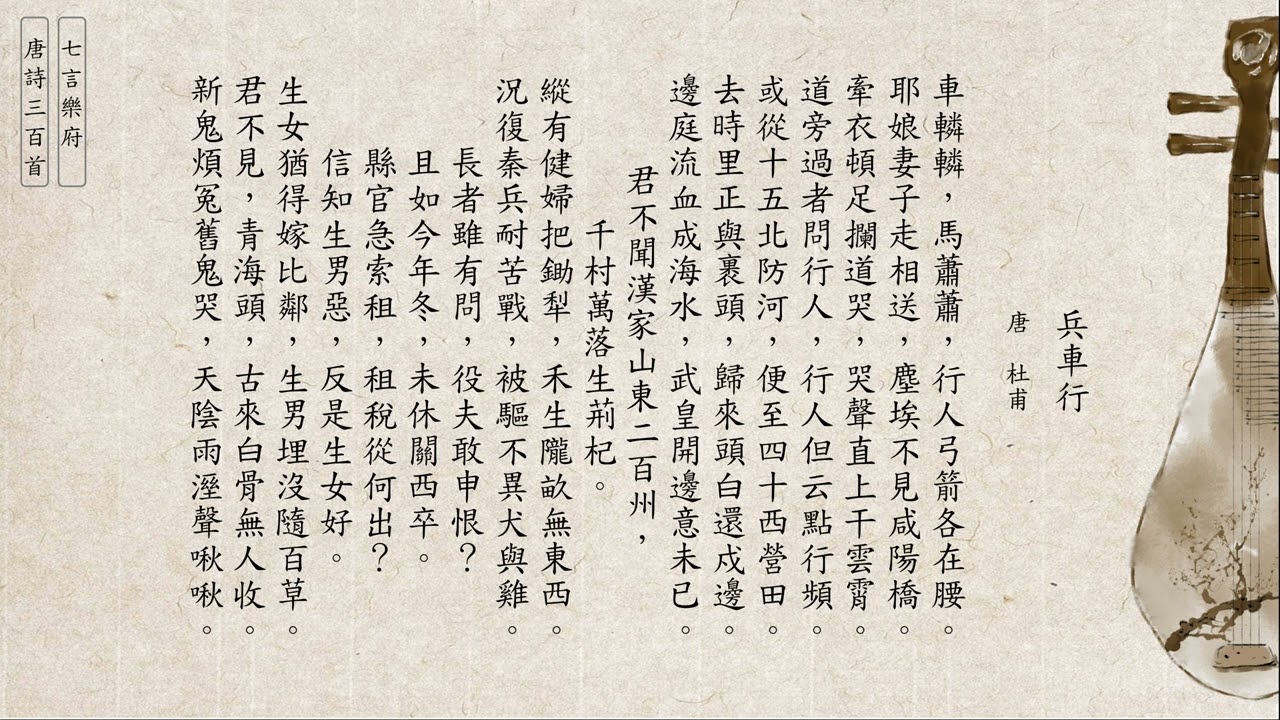 兵車行
唐 杜甫
車轔轔，馬蕭蕭，行人弓箭各在腰。
耶娘妻子走相送，塵埃不見咸陽橋。
牽衣頓足攔道哭，哭聲直上干雲霄。
道旁過者問行人，行人但云點行頻。
或從十五北防河，便至四十西營田。
去時里正與裹頭，歸來頭白還戍邊。
邊庭流血成海水，武皇開邊意未已。
君不聞漢家山東二百州，
千村萬落生荊杞。
縱有健婦把鋤犁，禾生隴畝無東西。
況復秦兵耐苦戰，被驅不異犬與雞。
長者雖有問，役夫敢申恨？
且如今年冬，未休關西卒。
縣官急索租，租稅從何出？
信知生男惡，反是生女好。
生女猶得嫁比鄰，生男埋沒隨百草。
君不見，青海頭，古來白骨無人收。
新鬼煩冤舊鬼哭，天陰雨溼聲啾啾。
七言樂府
唐詩三百首